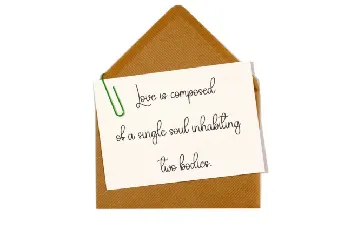 Love is composed
of a single soul inhabiting
two bodies.